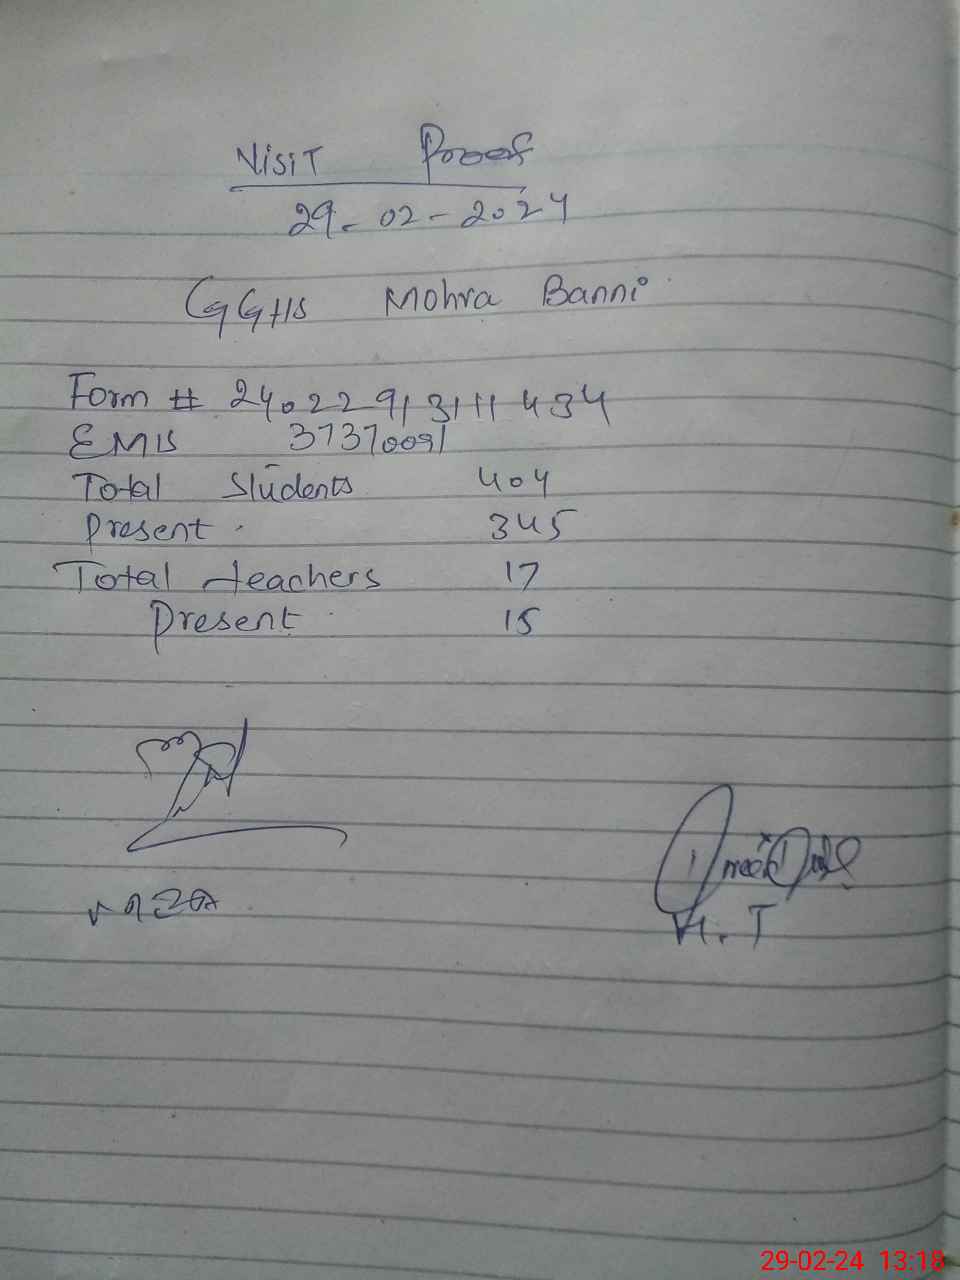 Visit Proof
29-02-2024
GGHS Mohra Banni
Form # 24022291311434
EMIS 37370091
Total Students 404
Present 345
Total teachers 17
Present 15
H.T
29-02-24 13:18